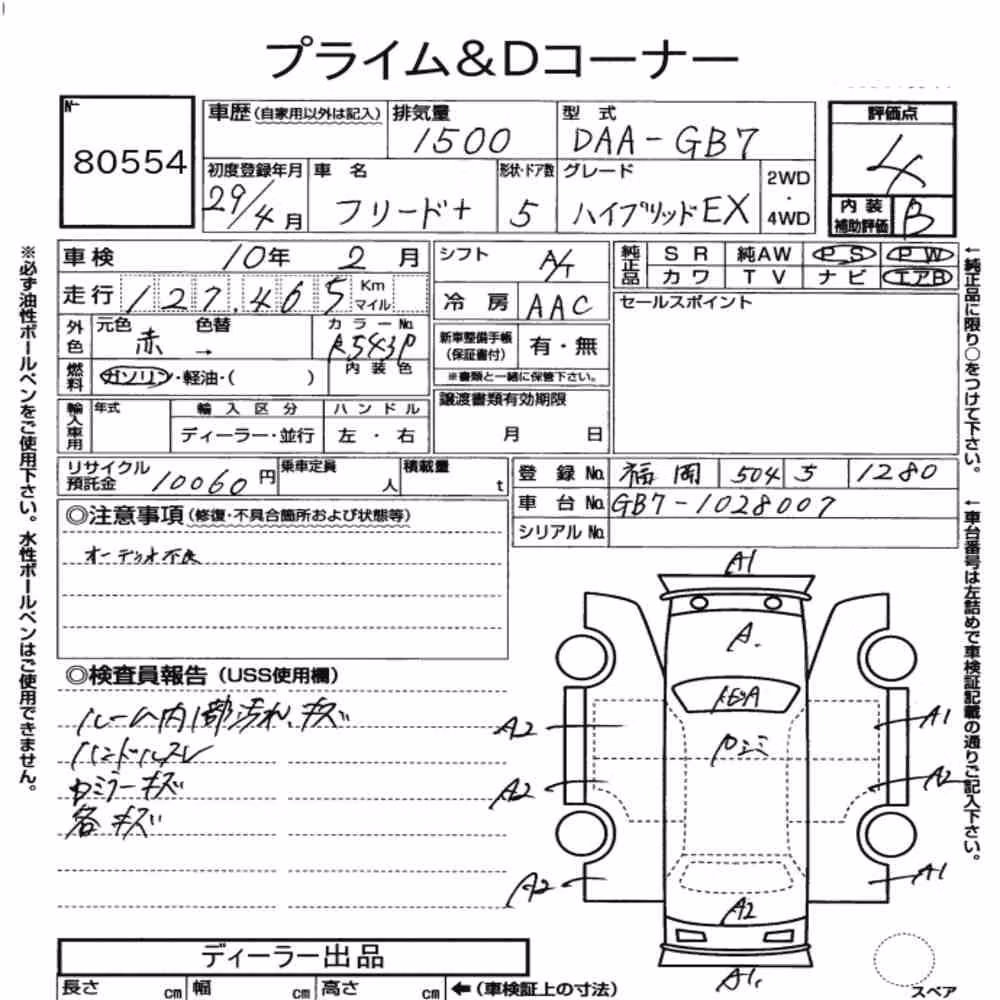 プライム&Dコーナー
No.
80554
車歴(自家用以外は記入)
排気量
1500
型式
DAA-GB7
評価点
4
初度登録年月
29/4月
車名
フリード+
形状・ドア数
5
グレード
ハイブリッドEX
2WD
・
4WD
内装
補助評価
B
車検 10年 2月
シフト
A/T
純正品
SR 純AW PS PW
カワ TV ナビ エアB
走行 127,465 Km
マイル
冷房 AAC
セールスポイント
外色
元色
赤
→
色替
カラーNo.
R543P
内装色
新車整備手帳
(保証書付)
有・無
※書類と一緒に保管下さい。
燃料
ガソリン・軽油・( )
譲渡書類有効期限
月 日
輸入車用
年式
輸入区分
ディーラー・並行
ハンドル
左・右
リサイクル
預託金
10060円
乗車定員
人
積載量
t
登録No. 福岡 504 5 1280
車台No. GB7-1028007
シリアルNo.
◎注意事項(修復・不具合箇所および状態等)
オーディオ不良
◎検査員報告(USS使用欄)
ルーム内1部汚れ、キズ
ハンドルスレ
ロミラーキズ
各キズ
A1
A.
A2
A1
A2
A2
A2
A1
A2
A1.
ディーラー出品
長さ cm 幅 cm 高さ cm ←(車検証上の寸法)
スペア
※必ず油性ボールペンをご使用下さい。水性ボールペンはご使用できません。
←純正品に限り○をつけて下さい。
←車台番号は左詰めで車検証記載の通りご記入下さい。